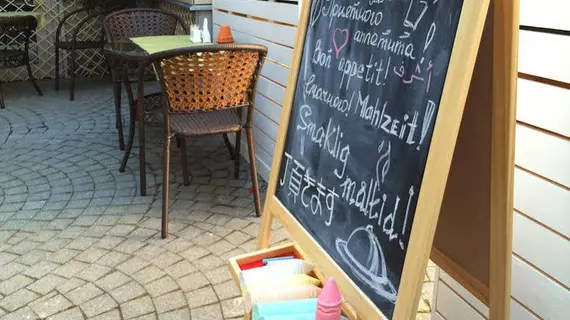 Приятного
аппетита!
Bon appetit!
смачного! Mahlzeit!
Smaklig måltid!
頂きます